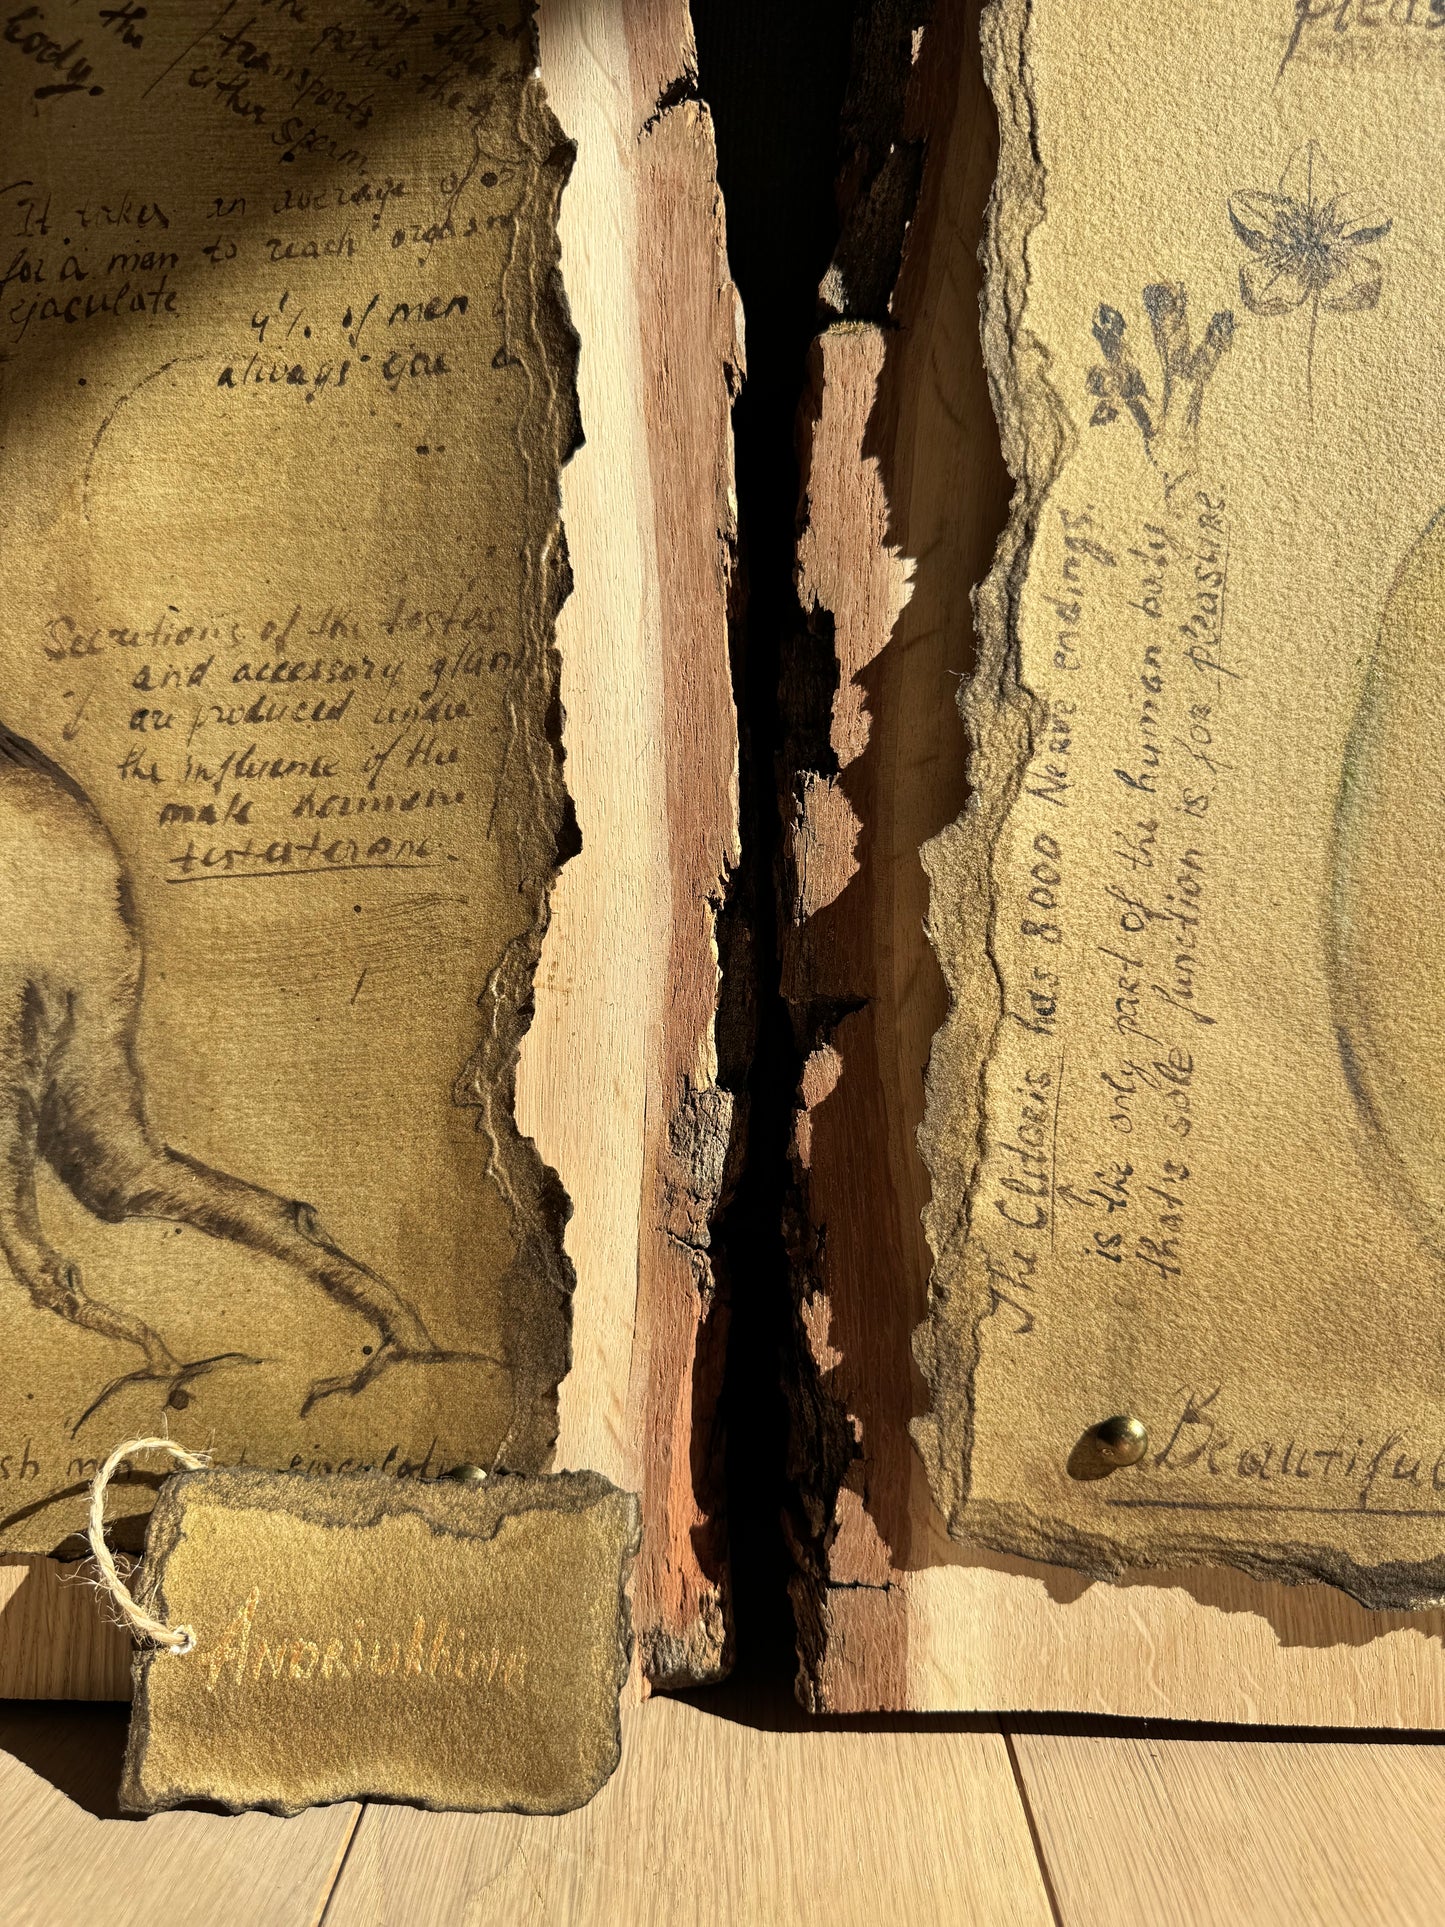 the
body.
the penis the
transports
either sperm
It takes an average of 5
for a man to reach orgasm
ejaculate
4% of men
always give a
Secretions of the testes
and accessory gland
are produced under
the influence of the
male hormone
testeterone.
men
ejaculation
Andriukhina
pleas
The Clidoris has 8000 Nerve endings.
is the only part of the human body
that is sole function is for pleasure.
Beautiful